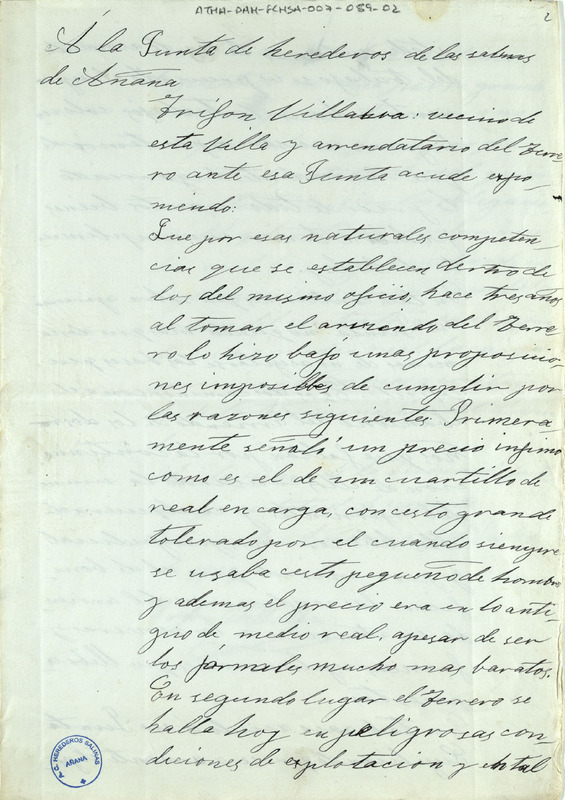 ATHA-DAH-FCHSA-007-089-02
2
Á la Junta de herederos de las salinas
de Añana
Trifon Villalva: vecino de
esta Villa y arrendatario del Terre
ro ante esa Junta acude expo
niendo:
Que por esas naturales competen
cias que se establecen dentro de
los del mismo oficio, hace tres años
al tomar el arriendo del Terre
ro lo hizo bajo unas proposicio
nes imposibles de cumplir por
las razones siguientes Primera
mente señaló un precio infimo
como es el de un cuartillo de
real en carga, con cesto grande
tolerado por el cuando siempre
se usaba cesto pequeño de hombro
y ademas el precio era en lo anti
guo de medio real, apesar de ser
los jornales mucho mas baratos.
En segundo lugar el Terrero se
halla hoy en peligrosas con
diciones de explotacion y en tal
C. HEREDEROS SALINAS
AÑANA